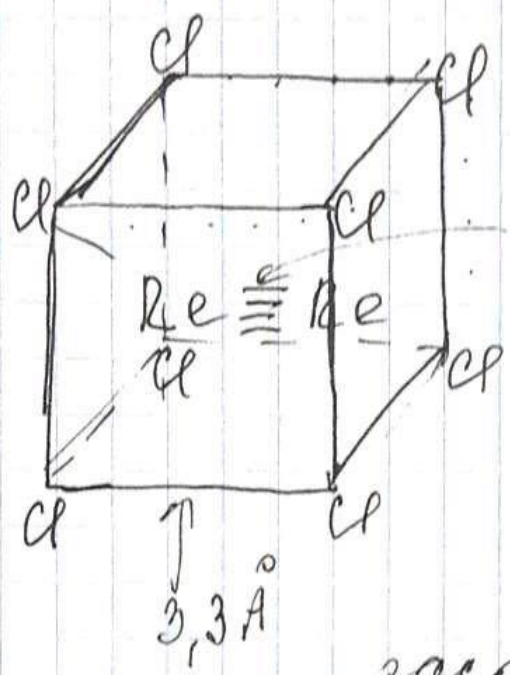 Cl
Cl
Cl
Cl
Re ≣ Re
Cl
Cl
Cl
Cl
3,3 Å